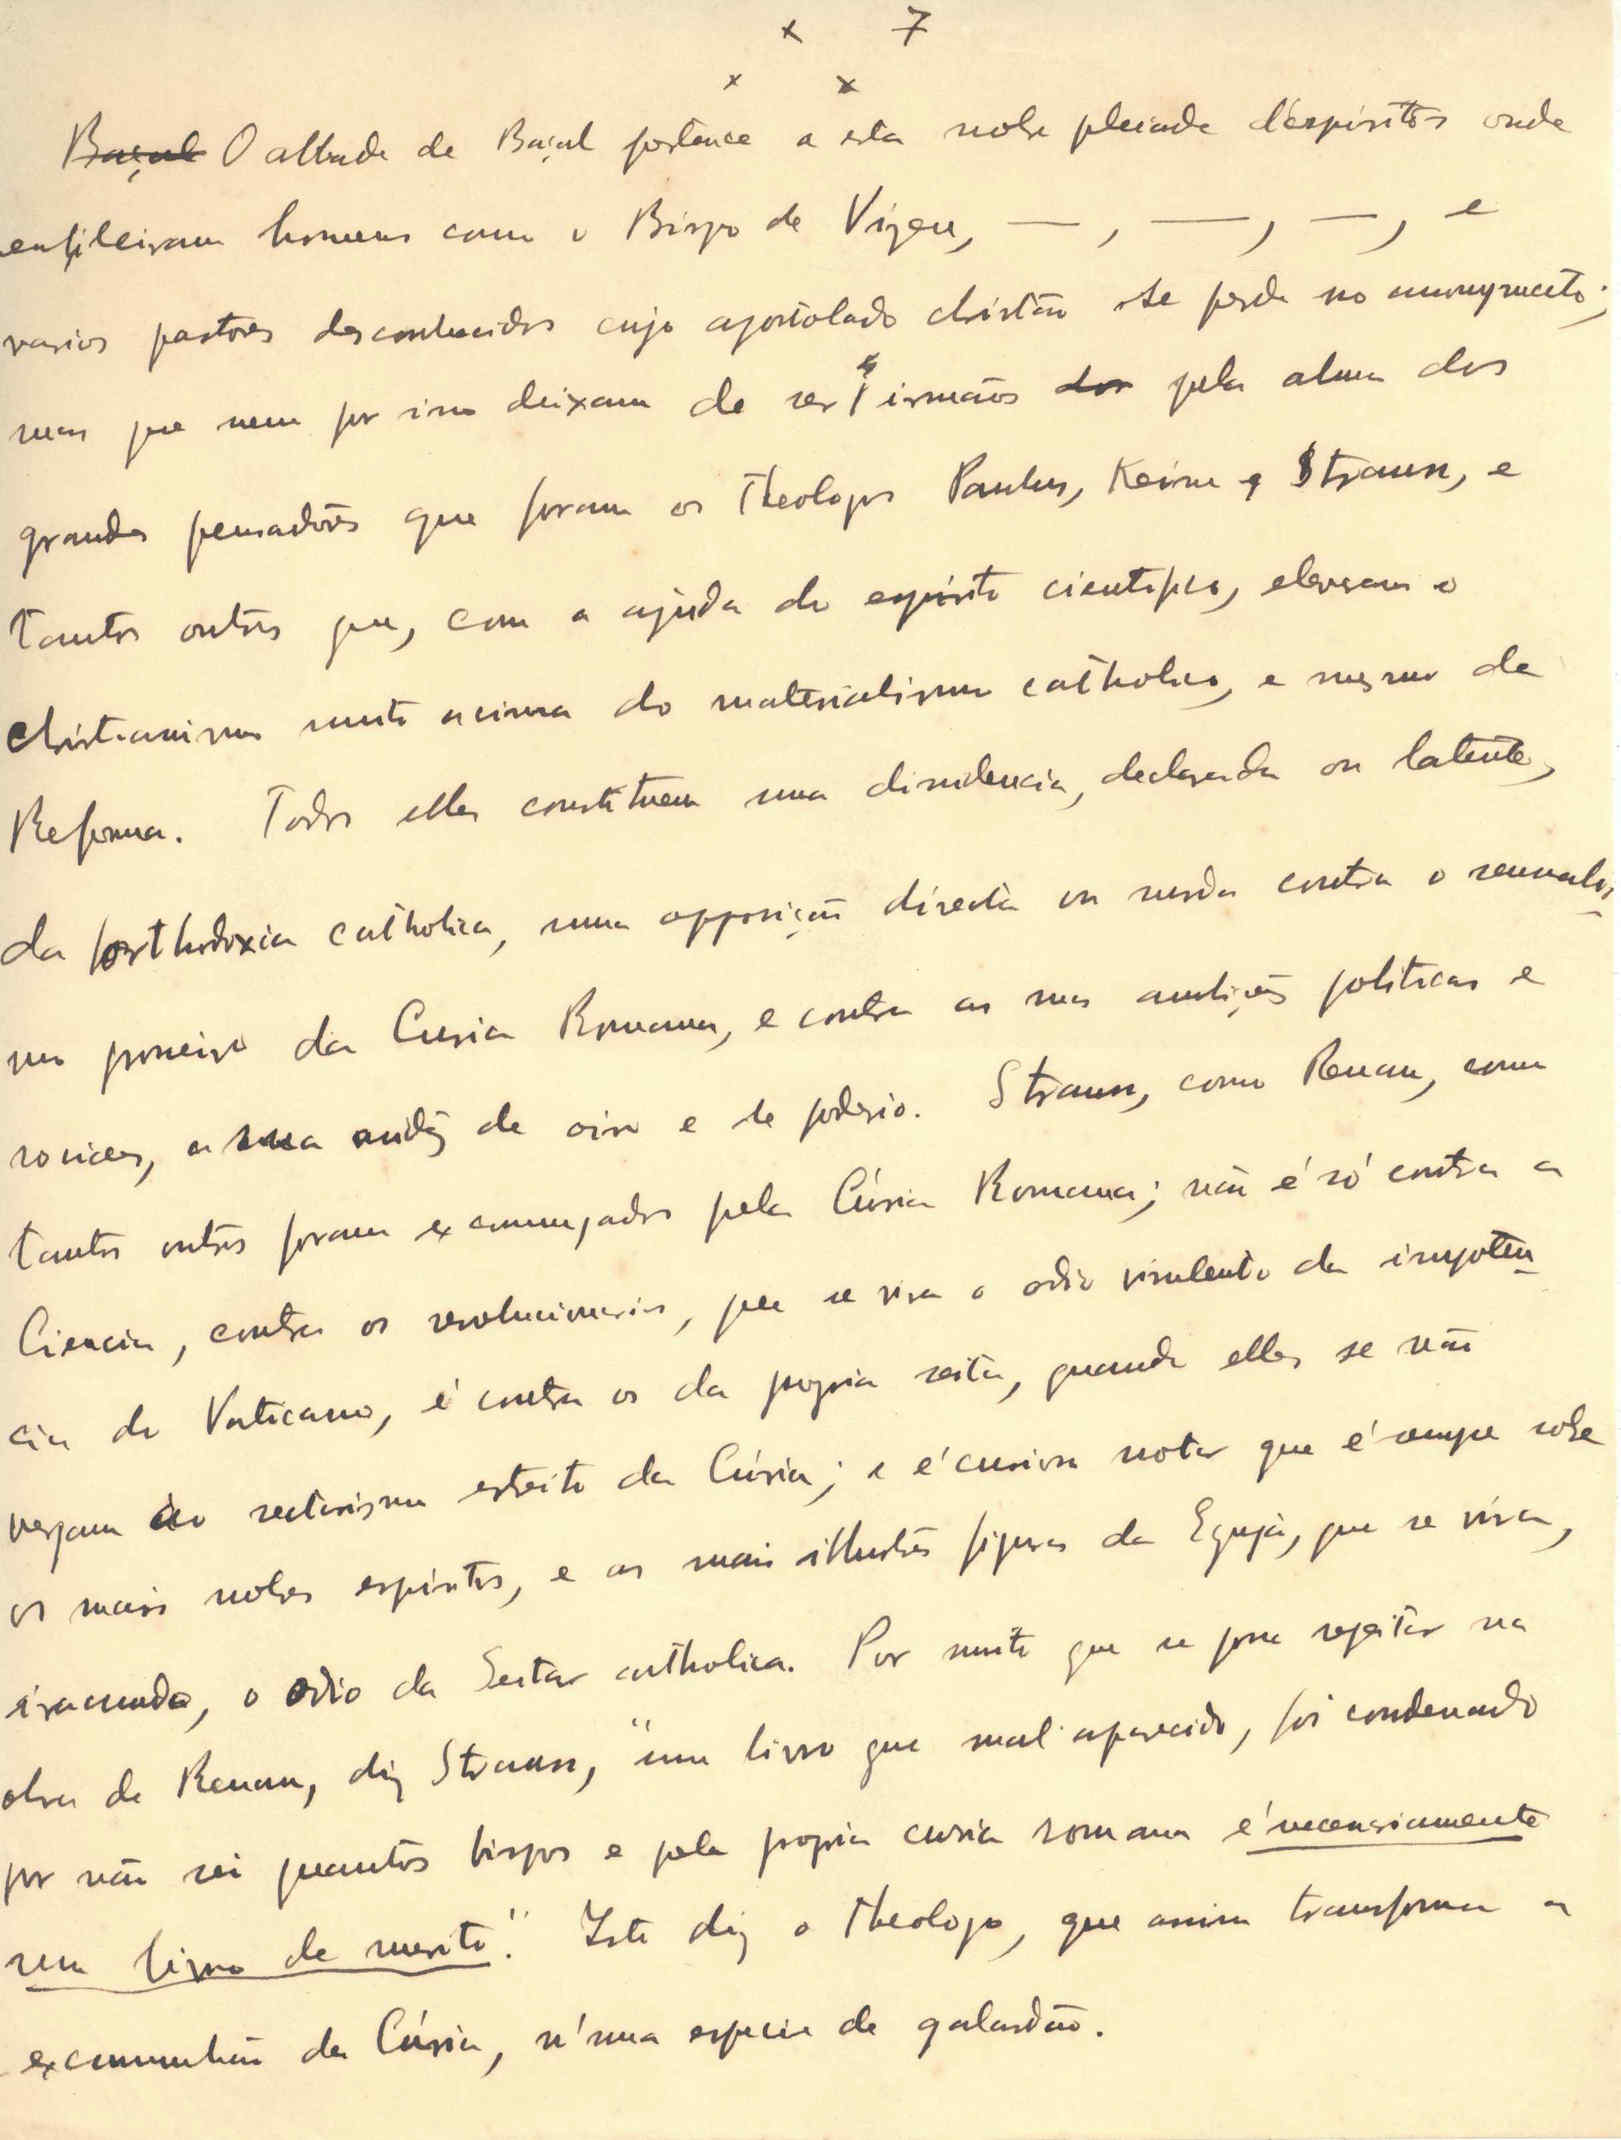 x 7
x x
Baçal O abbade de Baçal pertence a esta nobre pleiade d'espiritos onde
enfileiram homens como o Bispo de Vizeu, — , — , — , e
varios pastores desconhecidos cujo apostolado christão se perde no anonymato;
mas que nem por isso deixam de ser irmãos dos pela alma dos
grandes pensadores que foram os Theologos Paulus, Keim e Strauss, e
tantos outros que, com a ajuda do espirito cientifico, elevaram o
christianismo muito acima do materialismo catholico, e mesmo da
Reforma. Todos elles constituem uma dissidencia, declarada ou latente,
da orthodoxia catholica, uma opposição directa ou surda contra o
da Curia Romana, e contra as suas ambições politicas e
sociaes, a sua avidez de oiro e de poderio. Strauss, como Renan, como
tantos outros foram excomungados pela Cúria Romana; não é só contra a
Ciencia, contra os revolucionarios, que se vira o odio virulento da impoten-
cia do Vaticano, é contra os da propria seita, quando elles se não
vergam ao sectarismo estreito da Cúria; e é curioso notar que é sempre sobre
os mais nobres espiritos, e as mais illustres figuras da Egreja, que se vira,
iracundo, o odio da Seita catholica. Por muito que se possa regeitar na
obra de Renan, diz Strauss, "um livro que mal aparecido, foi condenado
por não sei quantos bispos e pela propria curia romana é necessariamente
um livro de merito". Isto diz o Theologo, que assim transforma a
excomunhão da Cúria, n'uma especie de galardão.